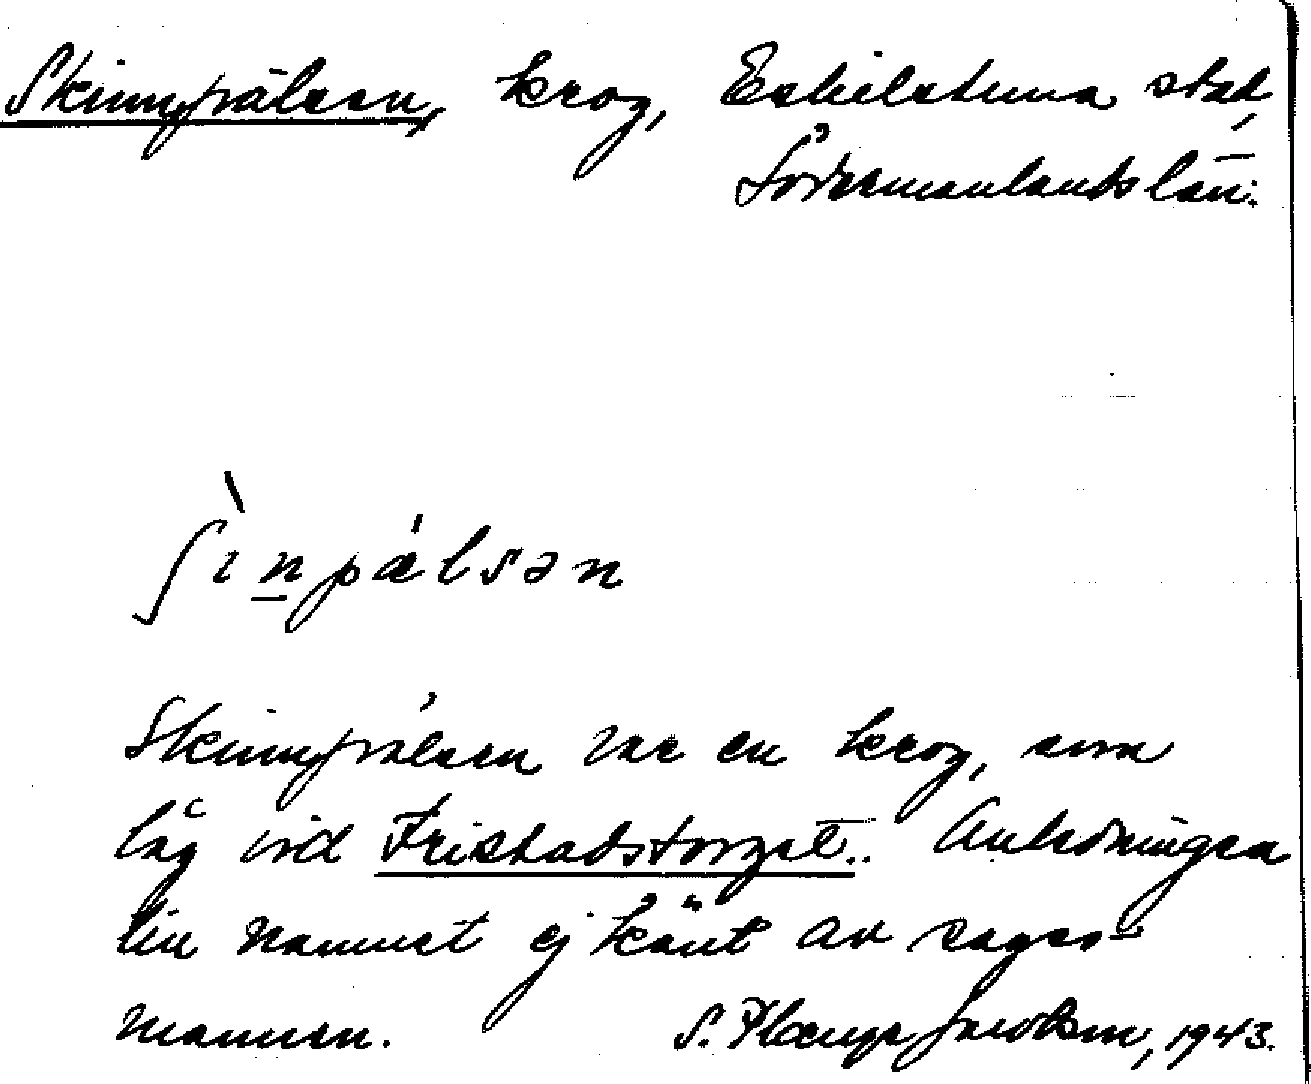 Skinnpälsen, krog, Eskilstuna stad,
Södermanlands län.
ʃìnpǽlsən
Skinnpälsen var en krog, som
låg vid Fristadstorget. Anledningen
till namnet ej känt av sages-
mannen. S.
, 1943.